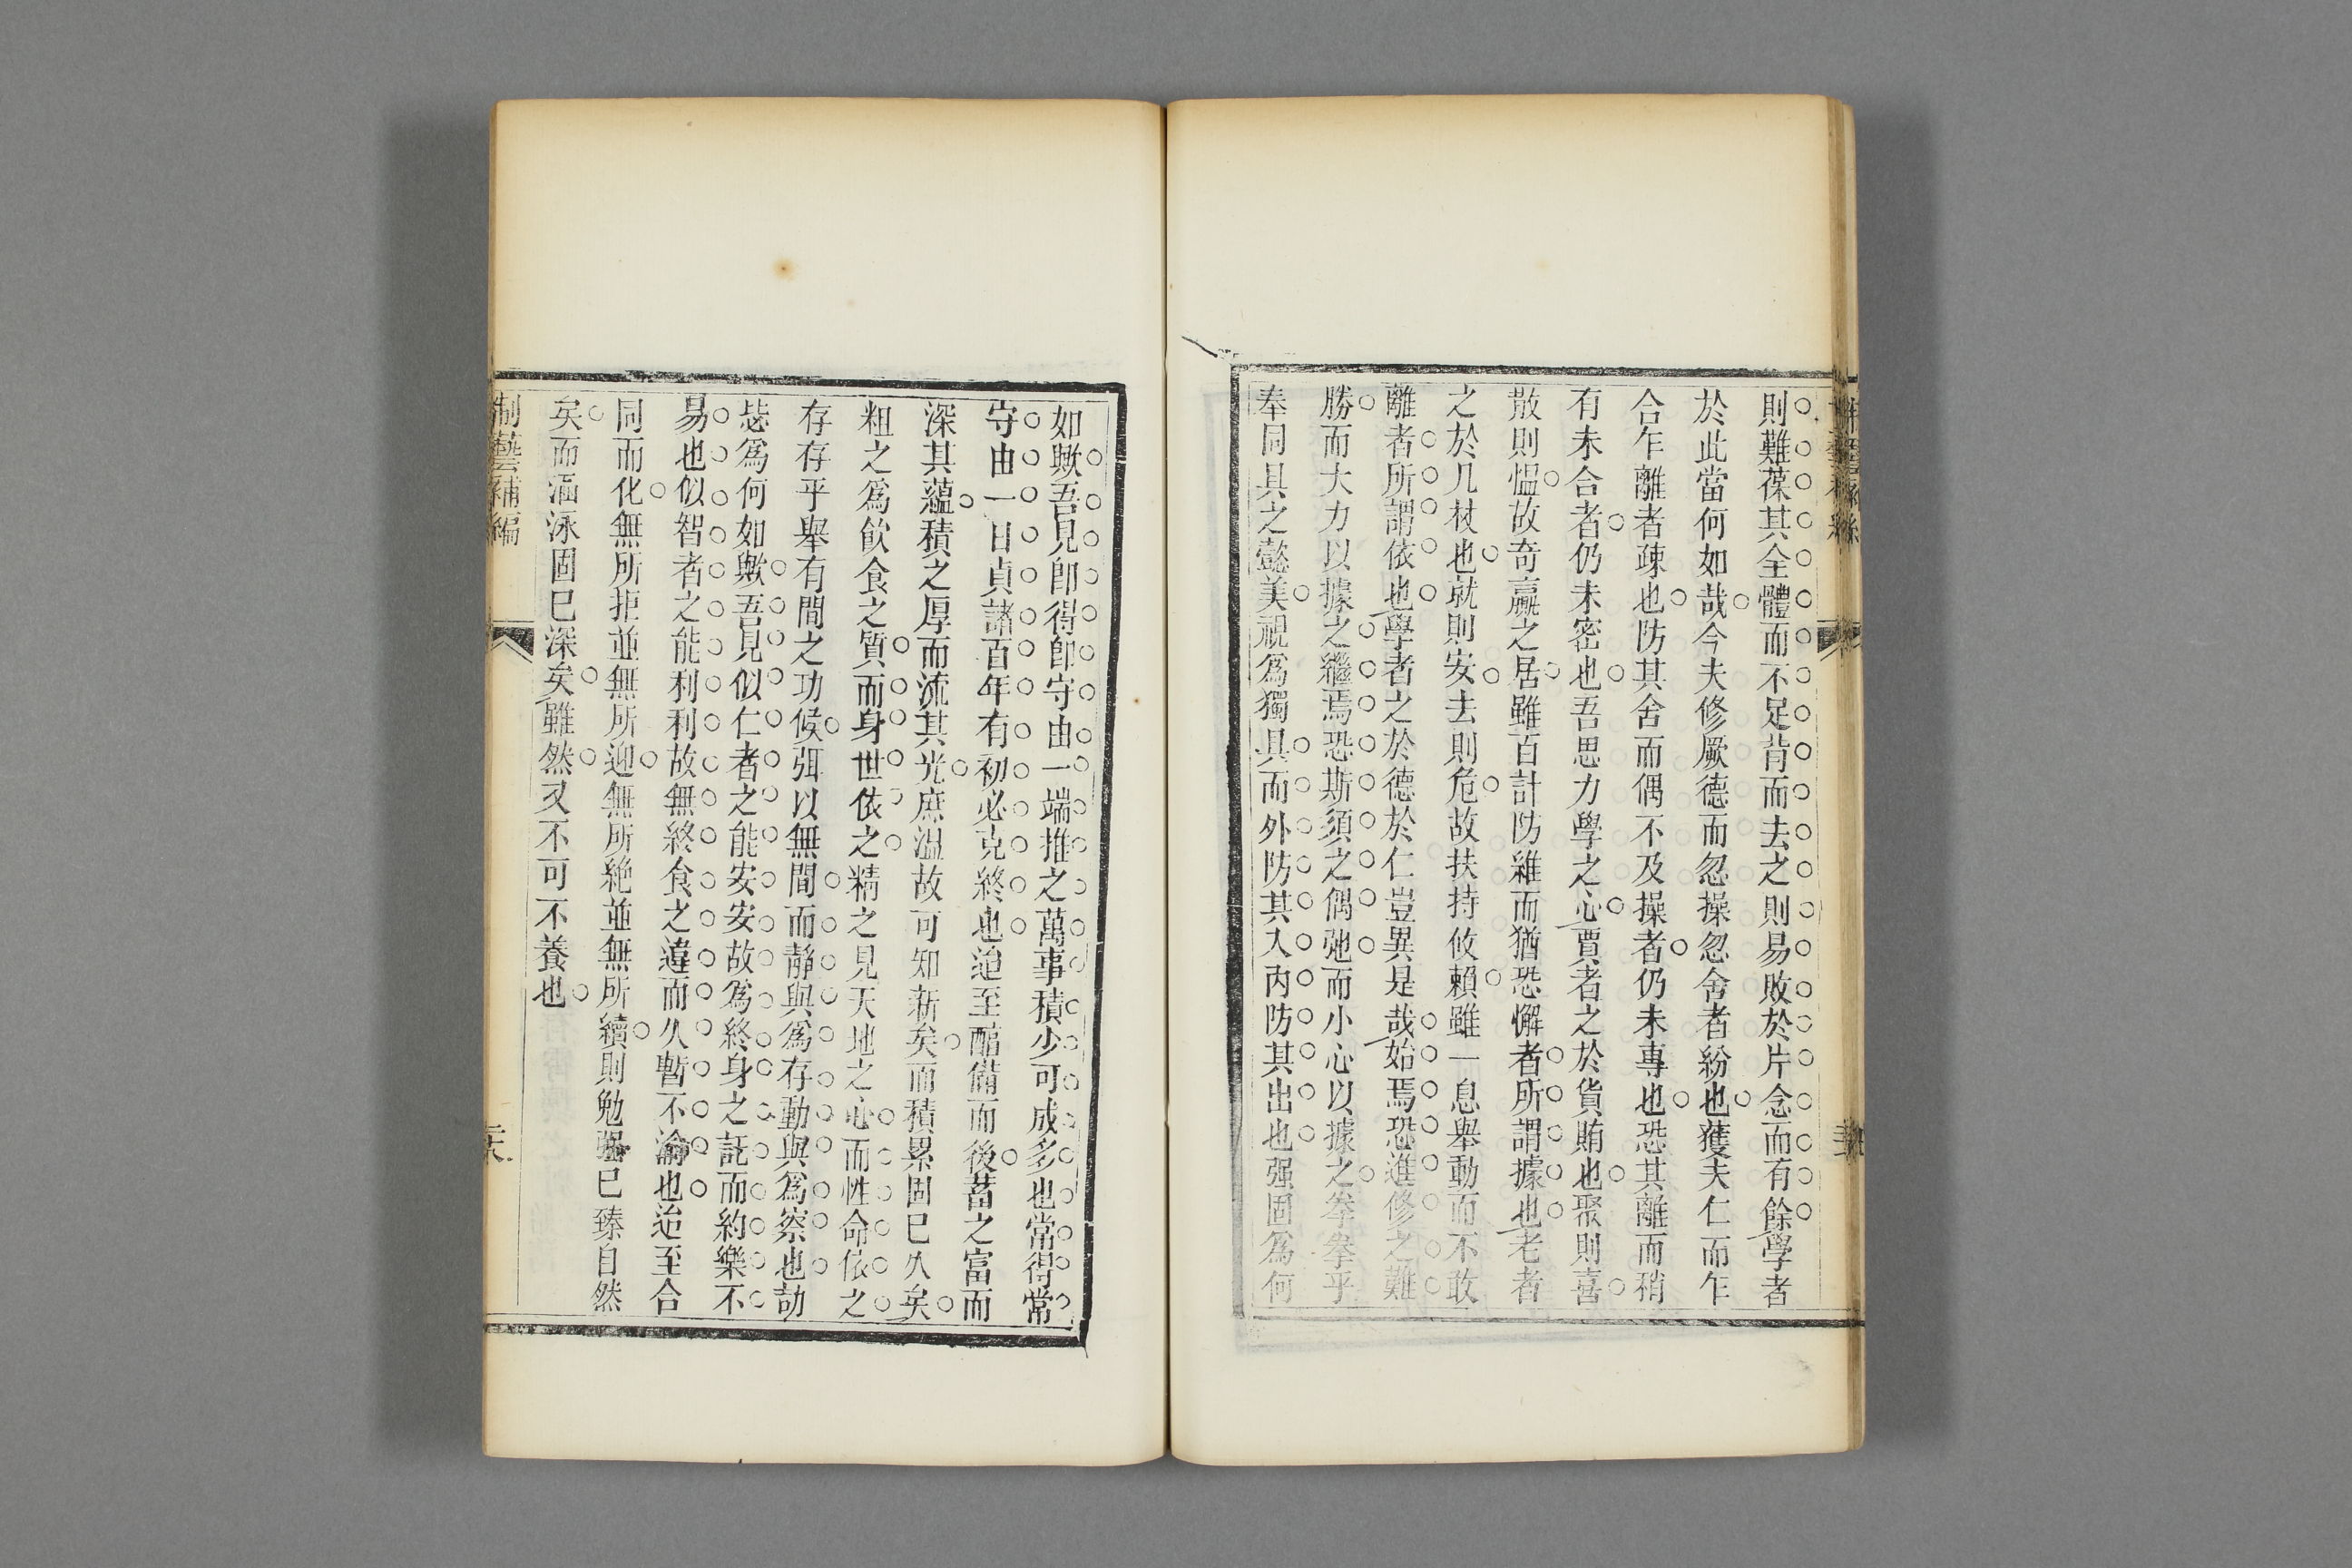 則難葆其全體而不足背而去之則易敗於片念而有餘學者
於此當何如哉今夫修厥德而忽操忽舍者紛也蒦夫仁而乍
合乍離者疎也防其舍而偶不及操者仍未專也恐其離而稍
有未合者仍未密也吾思力學之心賈者之於貨賄也聚則喜
散則愠故奇贏之居雖百計防維而猶恐懈者所謂據也老者
之於几杖也就則安去則危故扶持攸賴雖一息舉動而不敢
離者所謂依也學者之於德於仁豈異是哉始焉恐進修之難
勝而大力以據之繼焉恐斯須之偶弛而小心以據之拳拳乎
奉同具之懿美視為獨具而外防其入內防其出也强固為何
如歟吾見卽得卽守由一端推之萬事積少可成多也常得常
守由一日貞諸百年有初必克終也迨至醖備而後蓄之富而
深其蘊積之厚而流其光庶温故可知新矣而積累固已久矣
粗之為飲食之質而身世依之精之見天地之心而性命依之
存存乎舉有間之功候弭以無間而靜與為存動與為察也劼
毖為何如歟吾見似仁者之能安安故為終身之託而約樂不
易也似智者之能利利故無終食之違而久暫不渝也迨至合
同而化無所拒並無所迎無所絶並無所續則勉强已臻自然
矣而涵泳固已深矣雖然又不可不養也
制藝補編